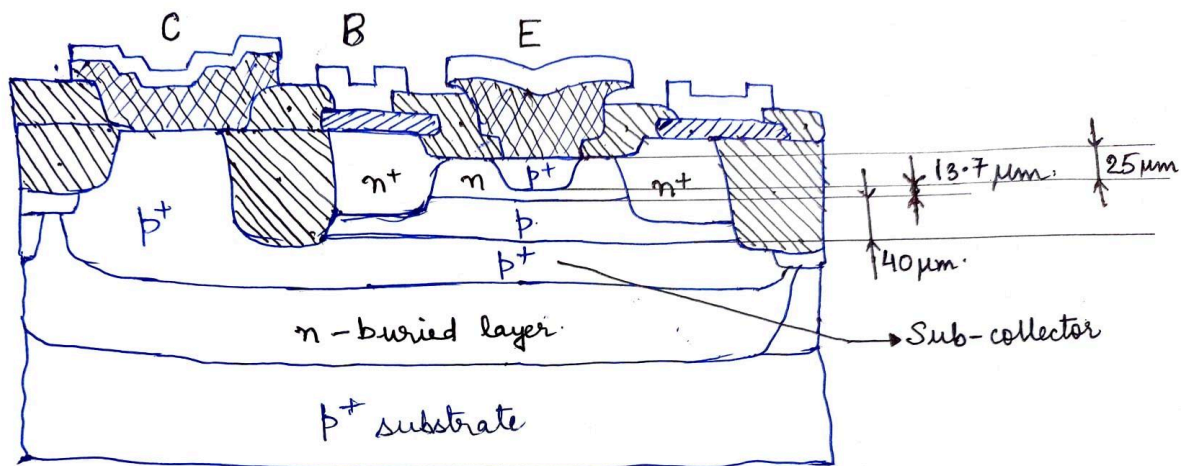 C B E
n+ n p+ n+
13.7 μm.
25 μm
p+
p.
p+
40 μm.
n-buried layer.
Sub-collector
p+ substrate